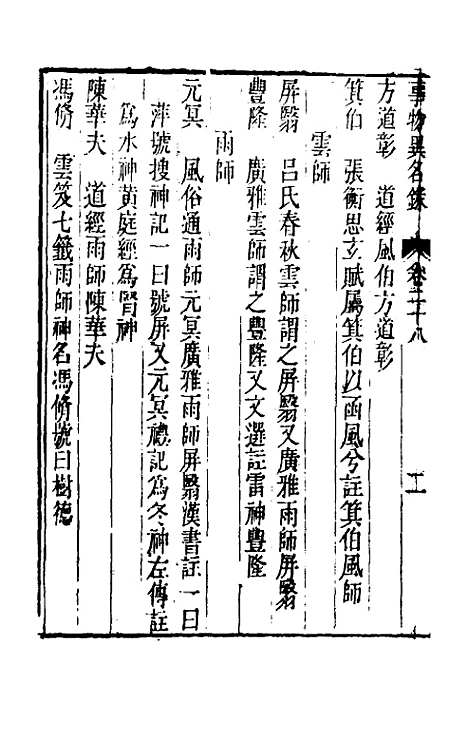 事物異名錄 卷二十八
方道彰　道經風伯方道彰
箕伯　張衡思玄賦屬箕伯以函風兮註箕伯風師
雲師
屏翳　呂氏春秋雲師謂之屏翳又廣雅雨師屏翳
豐隆　廣雅雲師謂之豐隆又文選註雷神豐隆
雨師
元冥　風俗通雨師元冥廣雅雨師屏翳漢書註一曰
萍號搜神記一曰號屏又元冥禮記為冬神左傳註
為水神黃庭經為腎神
陳華夫　道經雨師陳華夫
馮脩　雲笈七籤雨師神名馮脩號曰樹德